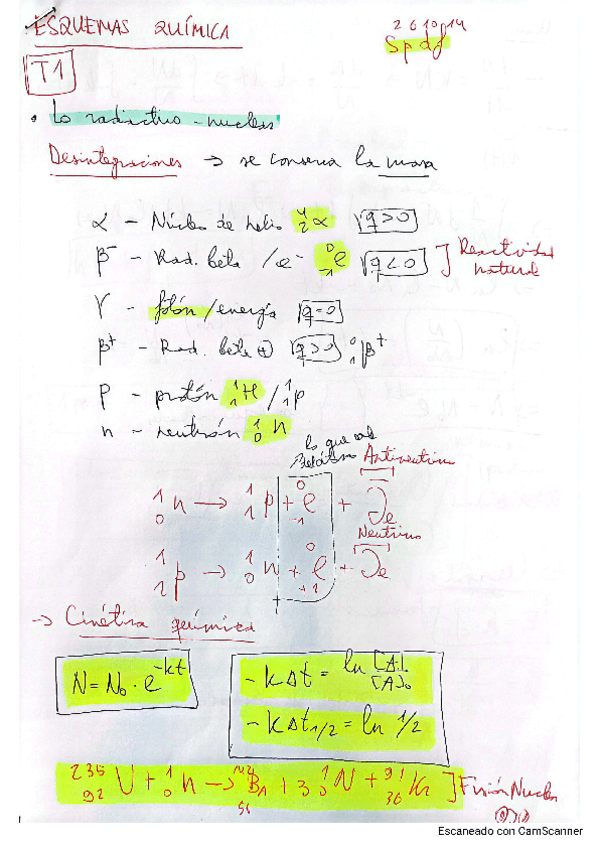 ESQUEMAS QUÍMICA
2 6 10 14
s p d f
T1
• Lo radiactivo - nuclear
Desintegraciones → se conserva la masa
α - Núcleo de helio ⁴₂α q>0
β⁻ - Rad. beta / e⁻ ⁰₋₁e q<0 ] Reactividad natural
γ - fotón/energía q=0
β⁺ - Rad. beta ⊕ q>0 ⁰₁β⁺
P - protón ¹₁H / ¹₁p
n - neutrón ¹₀n
lo que Antineutrino
¹₀n → ¹₁p + ⁰₋₁e + ν̅e
Neutrino
¹₁p → ¹₀n + ⁰₊₁e + νe
→ Cinética química
N = N₀ · e^-kt
-kΔt = ln [A]/[A]₀
-kΔt1/2 = ln 1/2
²³⁵₉₂U + ¹₀n → ¹⁴²₅₆Ba + 3 ¹₀N + ⁹¹₃₆Kr ] Fisión Nuclear
Escaneado con CamScanner